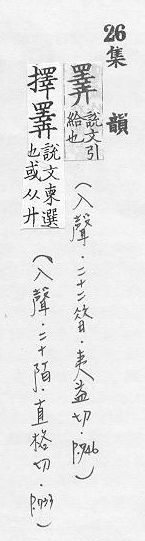 26集韻
睪 說文引給也
(入聲．二十二昔．夷益切．P.746)
擇 𢌿 說文柬選也或从廾
(入聲．二十陌．直格切．P.733)